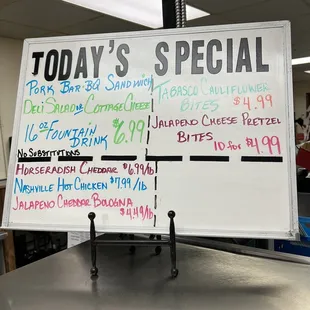 TODAY'S SPECIAL
PORK BAR-BQ SANDWICH
DELI SALAD OR COTTAGE CHEESE
16 OZ FOUNTAIN DRINK
$6.99
NO SUBSTITUTIONS
TABASCO CAULIFLOWER
BITES $4.99
JALAPENO CHEESE PRETZEL
BITES
10 for $1.99
HORSERADISH CHEDDAR $6.99/lb
NASHVILLE HOT CHICKEN $7.99/lb
JALAPENO CHEDDAR BOLOGNA
$4.49/lb